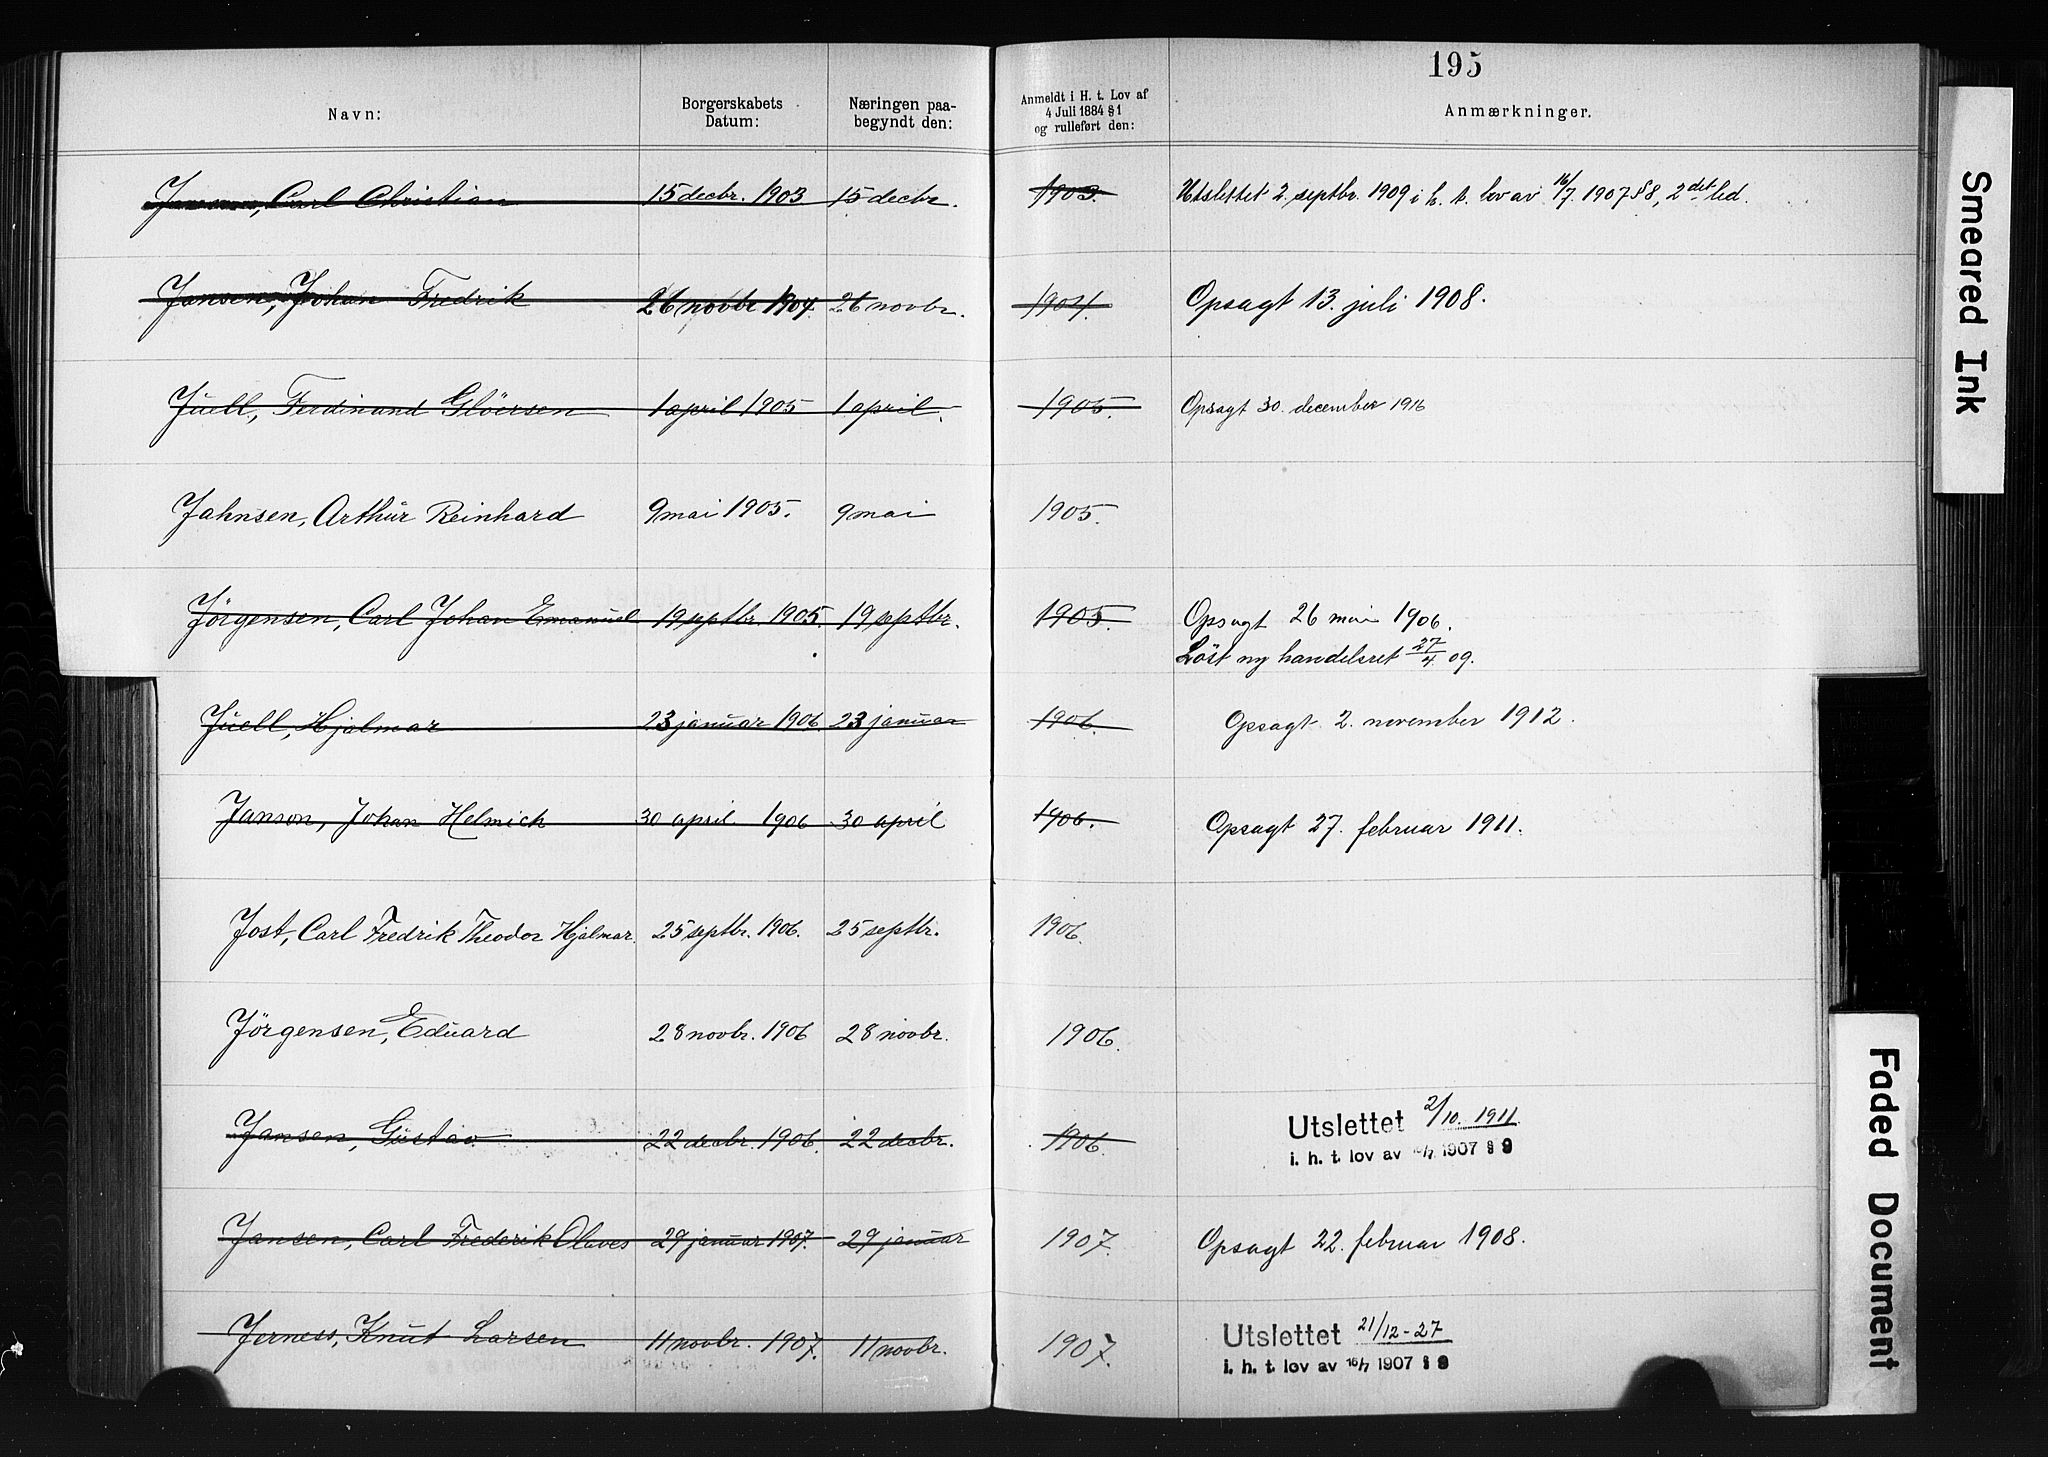 195
Navn: Borgerskabets Datum: Næringen paa-begyndt den: Anmeldt i H. t. Lov af 4 Juli 1884 § 1 og rulleført den: Anmærkninger.
Jansen, Carl Christian 15 decbr. 1903 15 decbr. 1903. Utslettet 2. septbr. 1909 i h. t. lov av 16/7. 1907 § 8, 2det led.
Jansen, Johan Fredrik 26 novbr 1904. 26 novbr. 1904. Opsagt 13. juli 1908.
Juell, Ferdinand Glöersen 1 april 1905 1 april. 1905. Opsagt 30. december 1916
Jahnsen, Arthur Reinhard 9 mai 1905. 9 mai 1905.
Jörgensen, Carl Johan Emanuel 19 septbr. 1905. 19 septbr. 1905. Opsagt 26 mai 1906.
Löst ny handelsret 27/4 09.
Juell, Hjalmar 23 januar 1906. 23 januar 1906. Opsagt 2. november 1912.
Janson, Johan Helmich 30 april 1906 30 april 1906. Opsagt 27. februar 1911.
Jost, Carl Fredrik Theodor Hjalmar. 25 septbr. 1906. 25 septbr. 1906.
Jörgensen, Eduard 28 novbr. 1906 28 novbr. 1906.
Jansen, Gustav 22 decbr. 1906. 22 decbr. 1906. Utslettet 2/10. 1911.
i. h. t. lov av 16/7 1907 § 9
Jansen, Carl Frederik Olaves 29 januar 1907. 29 januar 1907. Opsagt 22. februar 1908.
Jerness, Knut Larsen 11 novbr. 1907. 11 novbr. 1907. Utslettet 21/12-27
i. h. t. lov av 16/7 1907 § 9
Smeared Ink
Faded Document